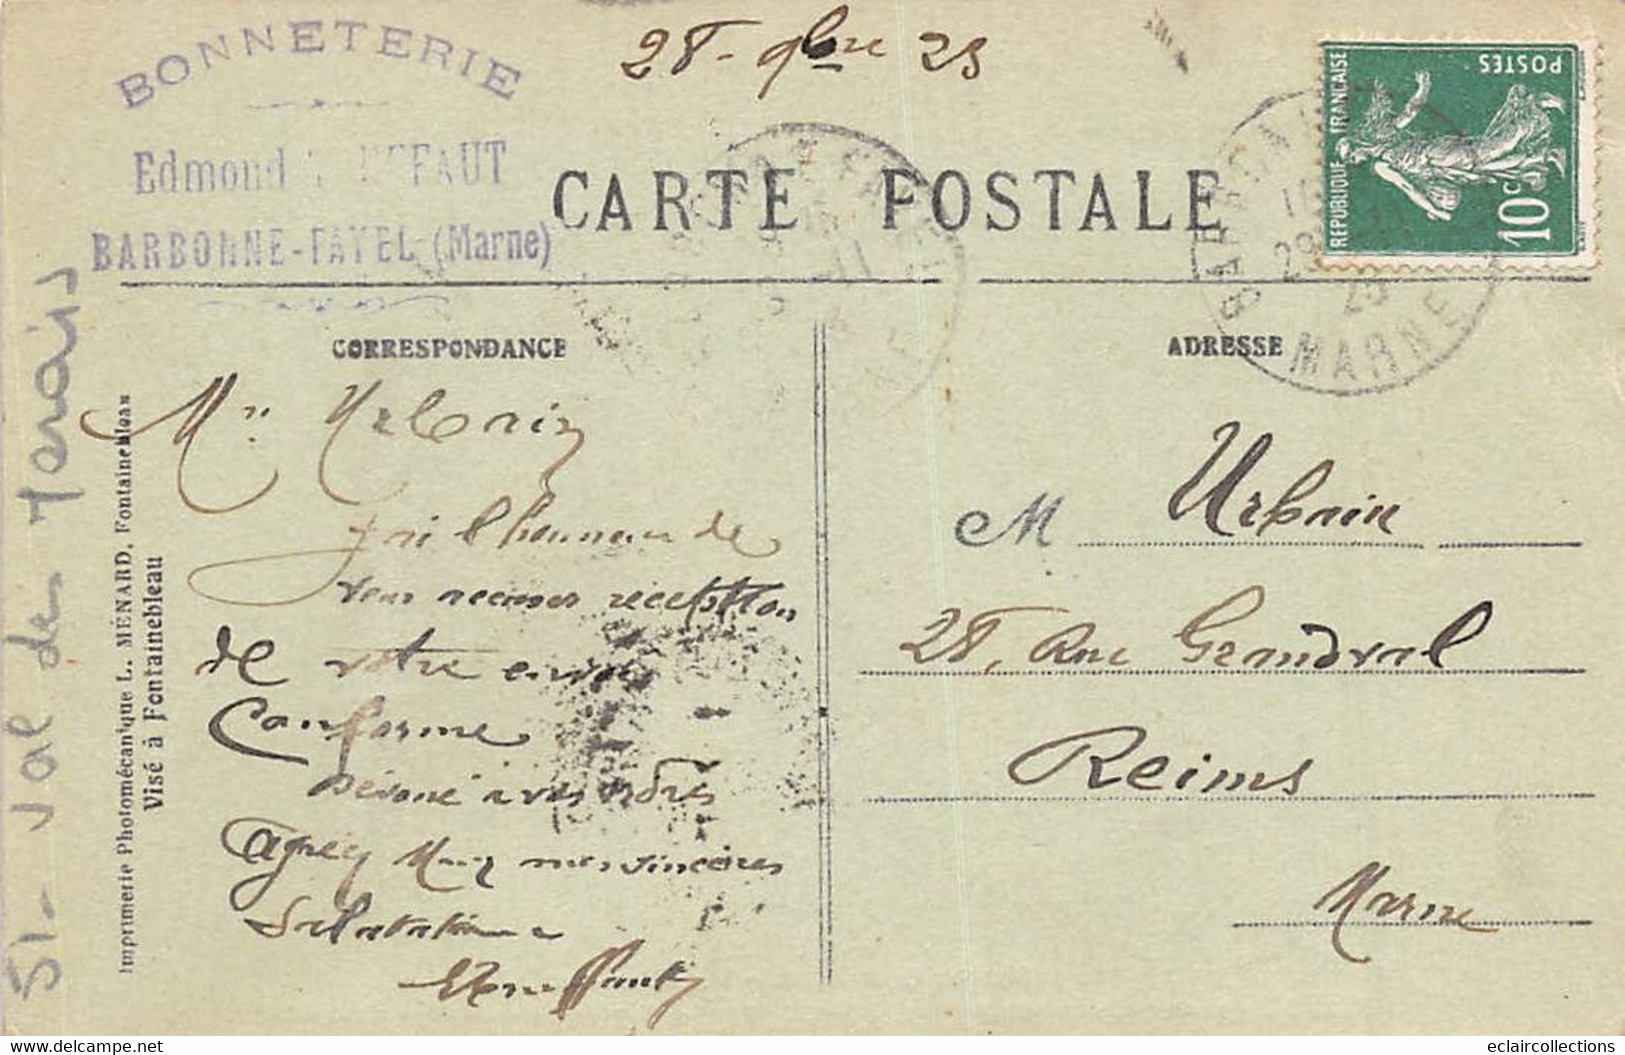 BONNETERIE
Edmond
BARBONNE-FAYEL (Marne)
28 - 9bre 23
CARTE POSTALE
REPUBLIQUE FRANÇAISE
POSTES
10c
MARNE
CORRESPONDANCE
ADRESSE
Mr Urbain
j'ai l'honneur de
vous accuser réception
de votre envoi
Conforme
Dévoué à vos ordres
agréez Mr mes sincères
Salutations
M Urbain
28, Rue Grandval
Reims
Marne
Imprimerie Photomécanique L. MÉNARD, Fontainebleau
Visé à Fontainebleau
51 - Val des Marais
www.delcampe.net
eclaircollections